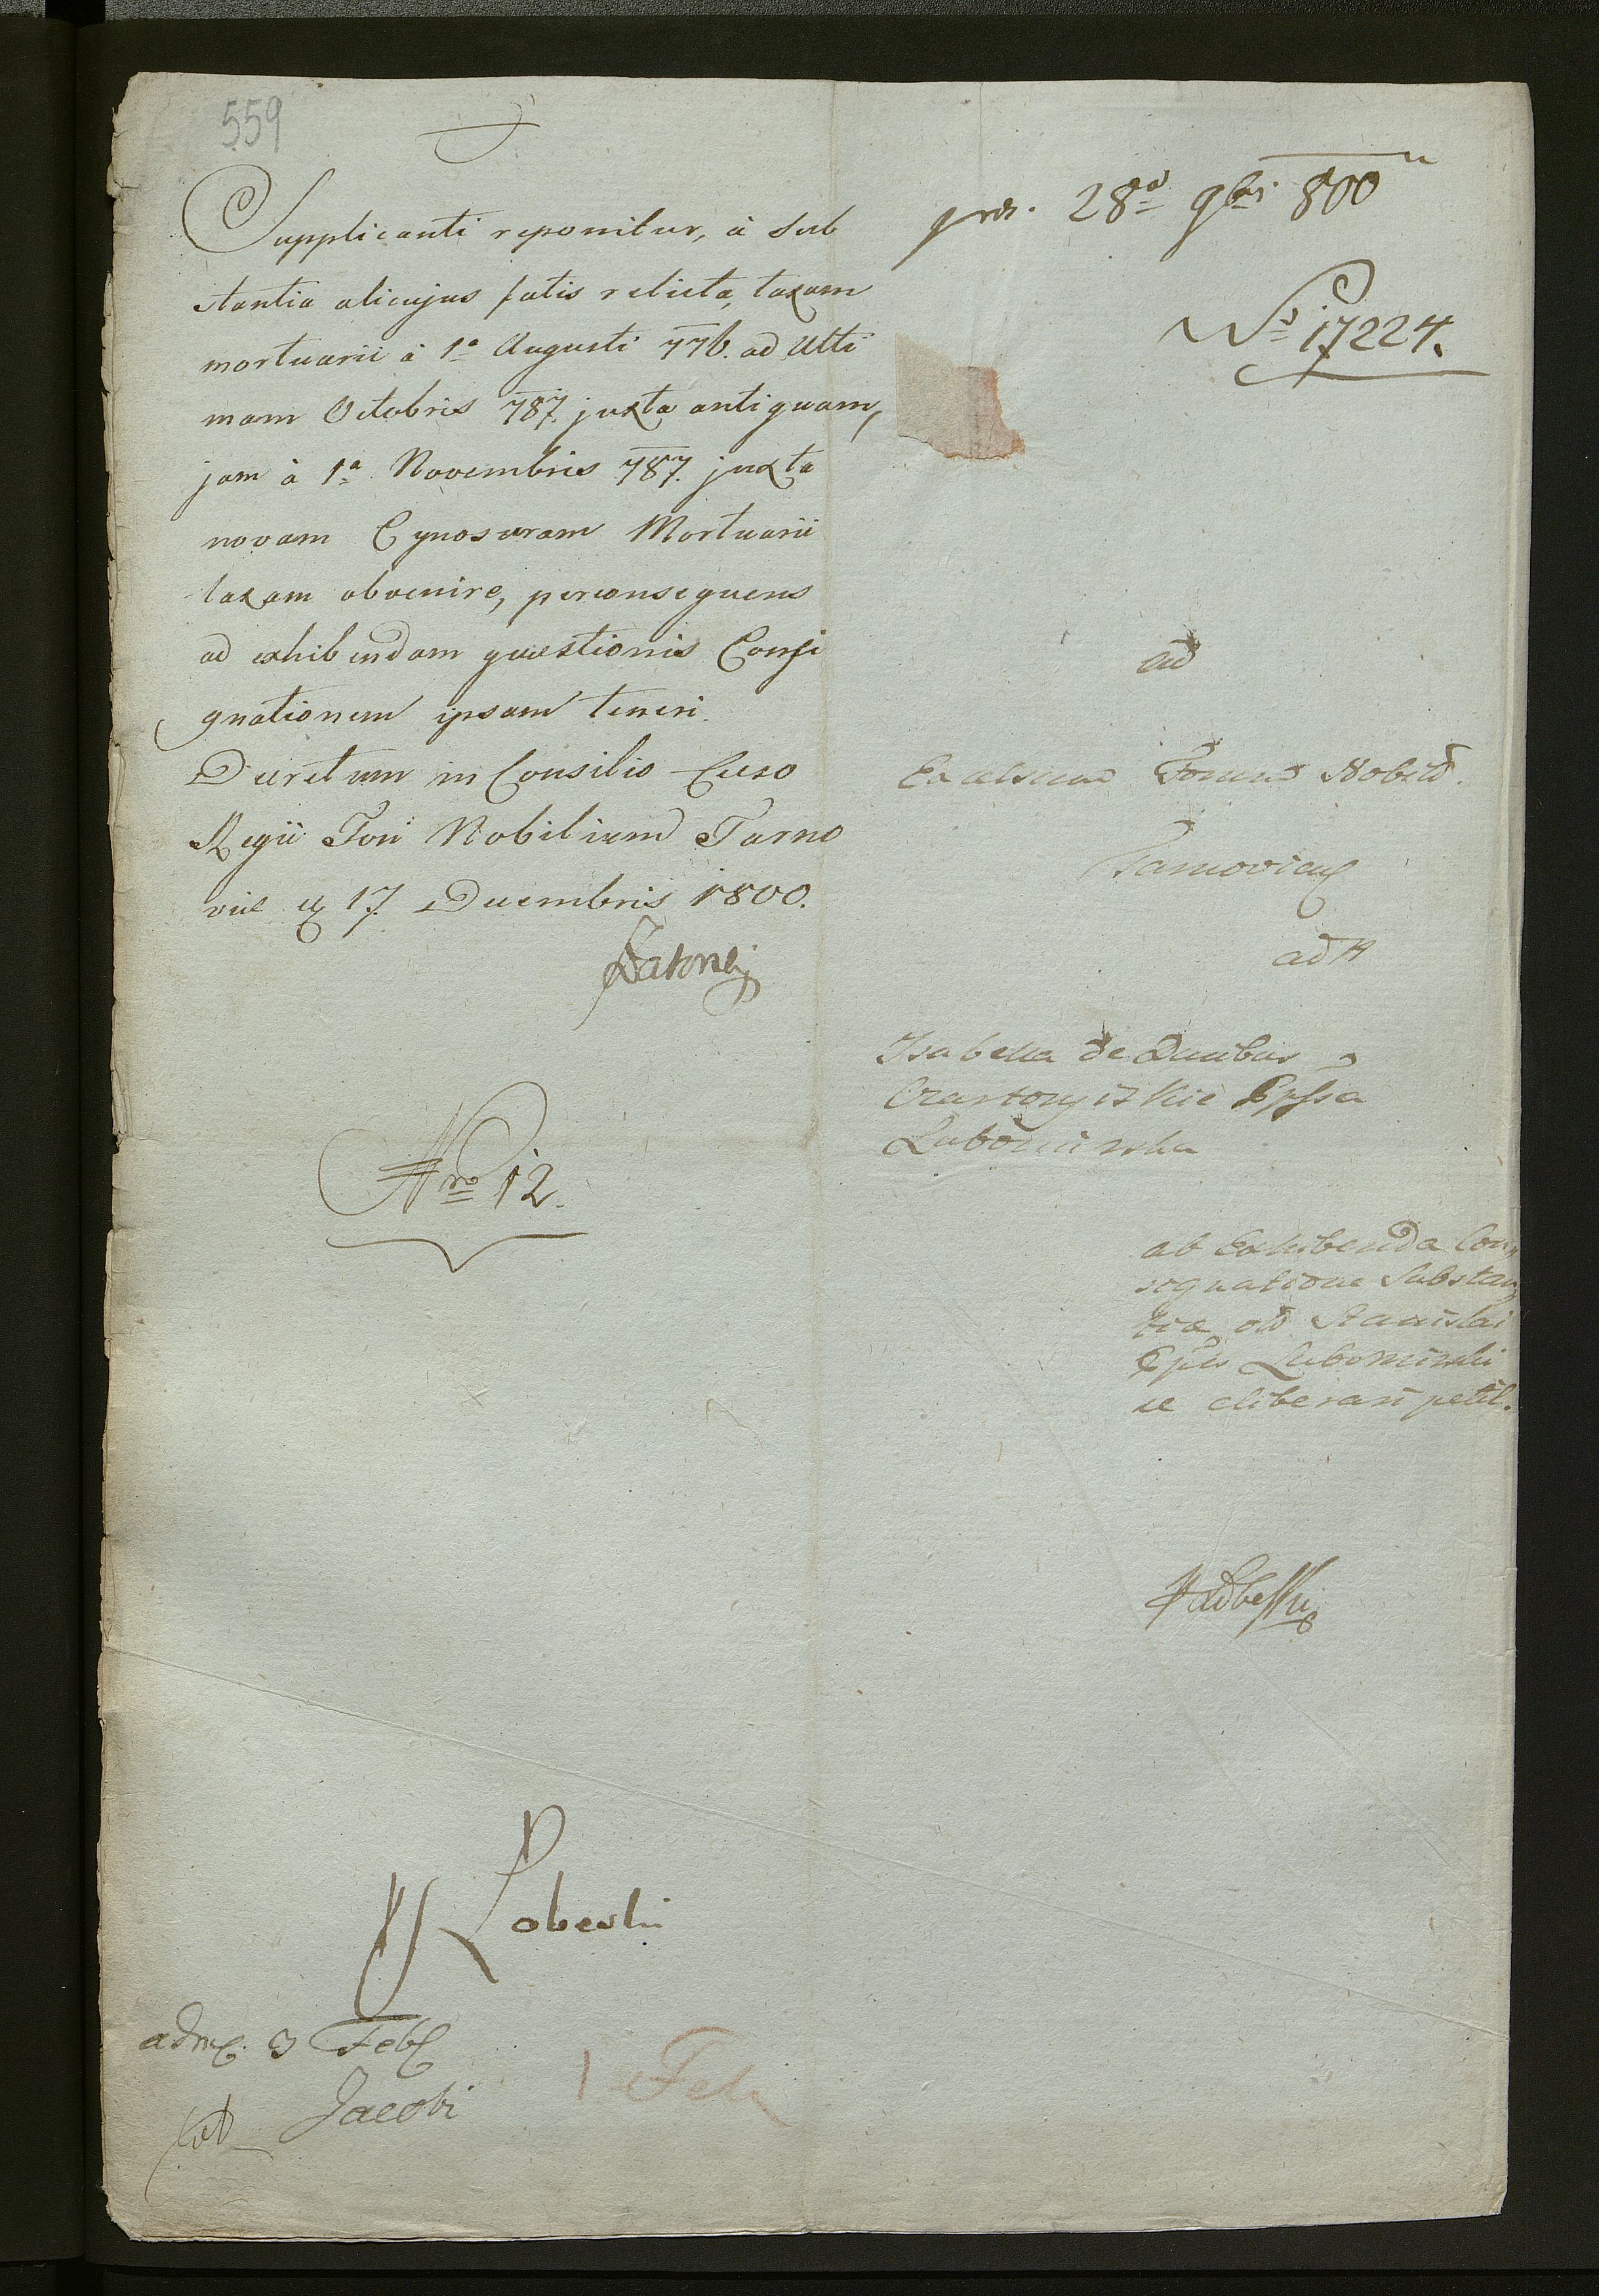 559
Supplicanti reponitur, à sub
stantia alicujus fatis relicta, taxam
mortuarii à 1a Augusti 776. ad Ulti
mam Octobris 787. juxta antiquam,
jam à 1a Novembris 787. juxta
novam Cynosuram Mortuarii
taxam obvenire, perconsequens
ad exhibendam quaestionis Consi
gnationem ipsam teneri.
Decretum in Consilio Cæso
Regii Fori Nobilium Tarno
viæ 17. Decembris 1800.
Nro 12.
Lobeski
3 Feb
Jacobi
1 Feb
præs. 28a 9bris 800
No 17224.
ad
Excelsum Forum Nobiliū
Tarnoviens
ad A
Isabella de Ducibus
Czartoryiskie Ppssa
Lubomirska
ab Exhibenda Con,
signatione Substan,
tiæ olī Stanislai
Ppis Lubomirski
se eliberari petit.